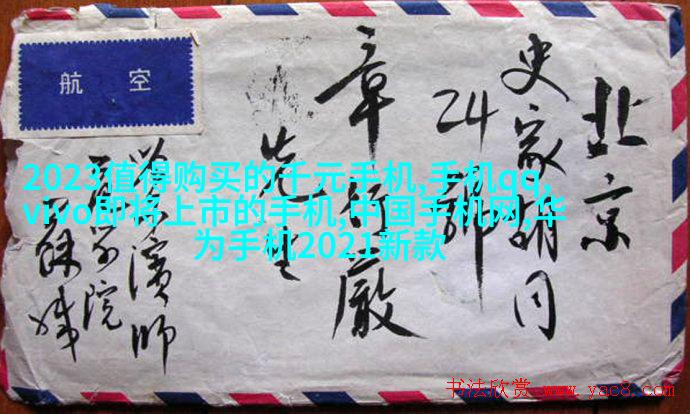 航空
北京
史家胡同
24號
章行嚴
先生
濱師
学院
2023值得购买的千元手机,手机qq,
vivo即将上市的手机,中国手机网,华
为手机2021新款
书法欣赏 www.yac8.com